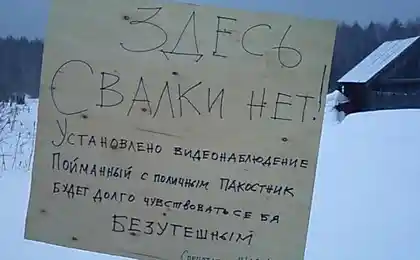 ЗДЕСЬ
СВАЛКИ НЕТ!
УСТАНОВЛЕНО ВИДЕОНАБЛЮДЕНИЕ
ПОЙМАННЫЙ С ПОЛИЧНЫМ ПАКОСТНИК
БУДЕТ ДОЛГО ЧУВСТВОВАТЬ СЕБЯ
БЕЗУТЕШНЫМ